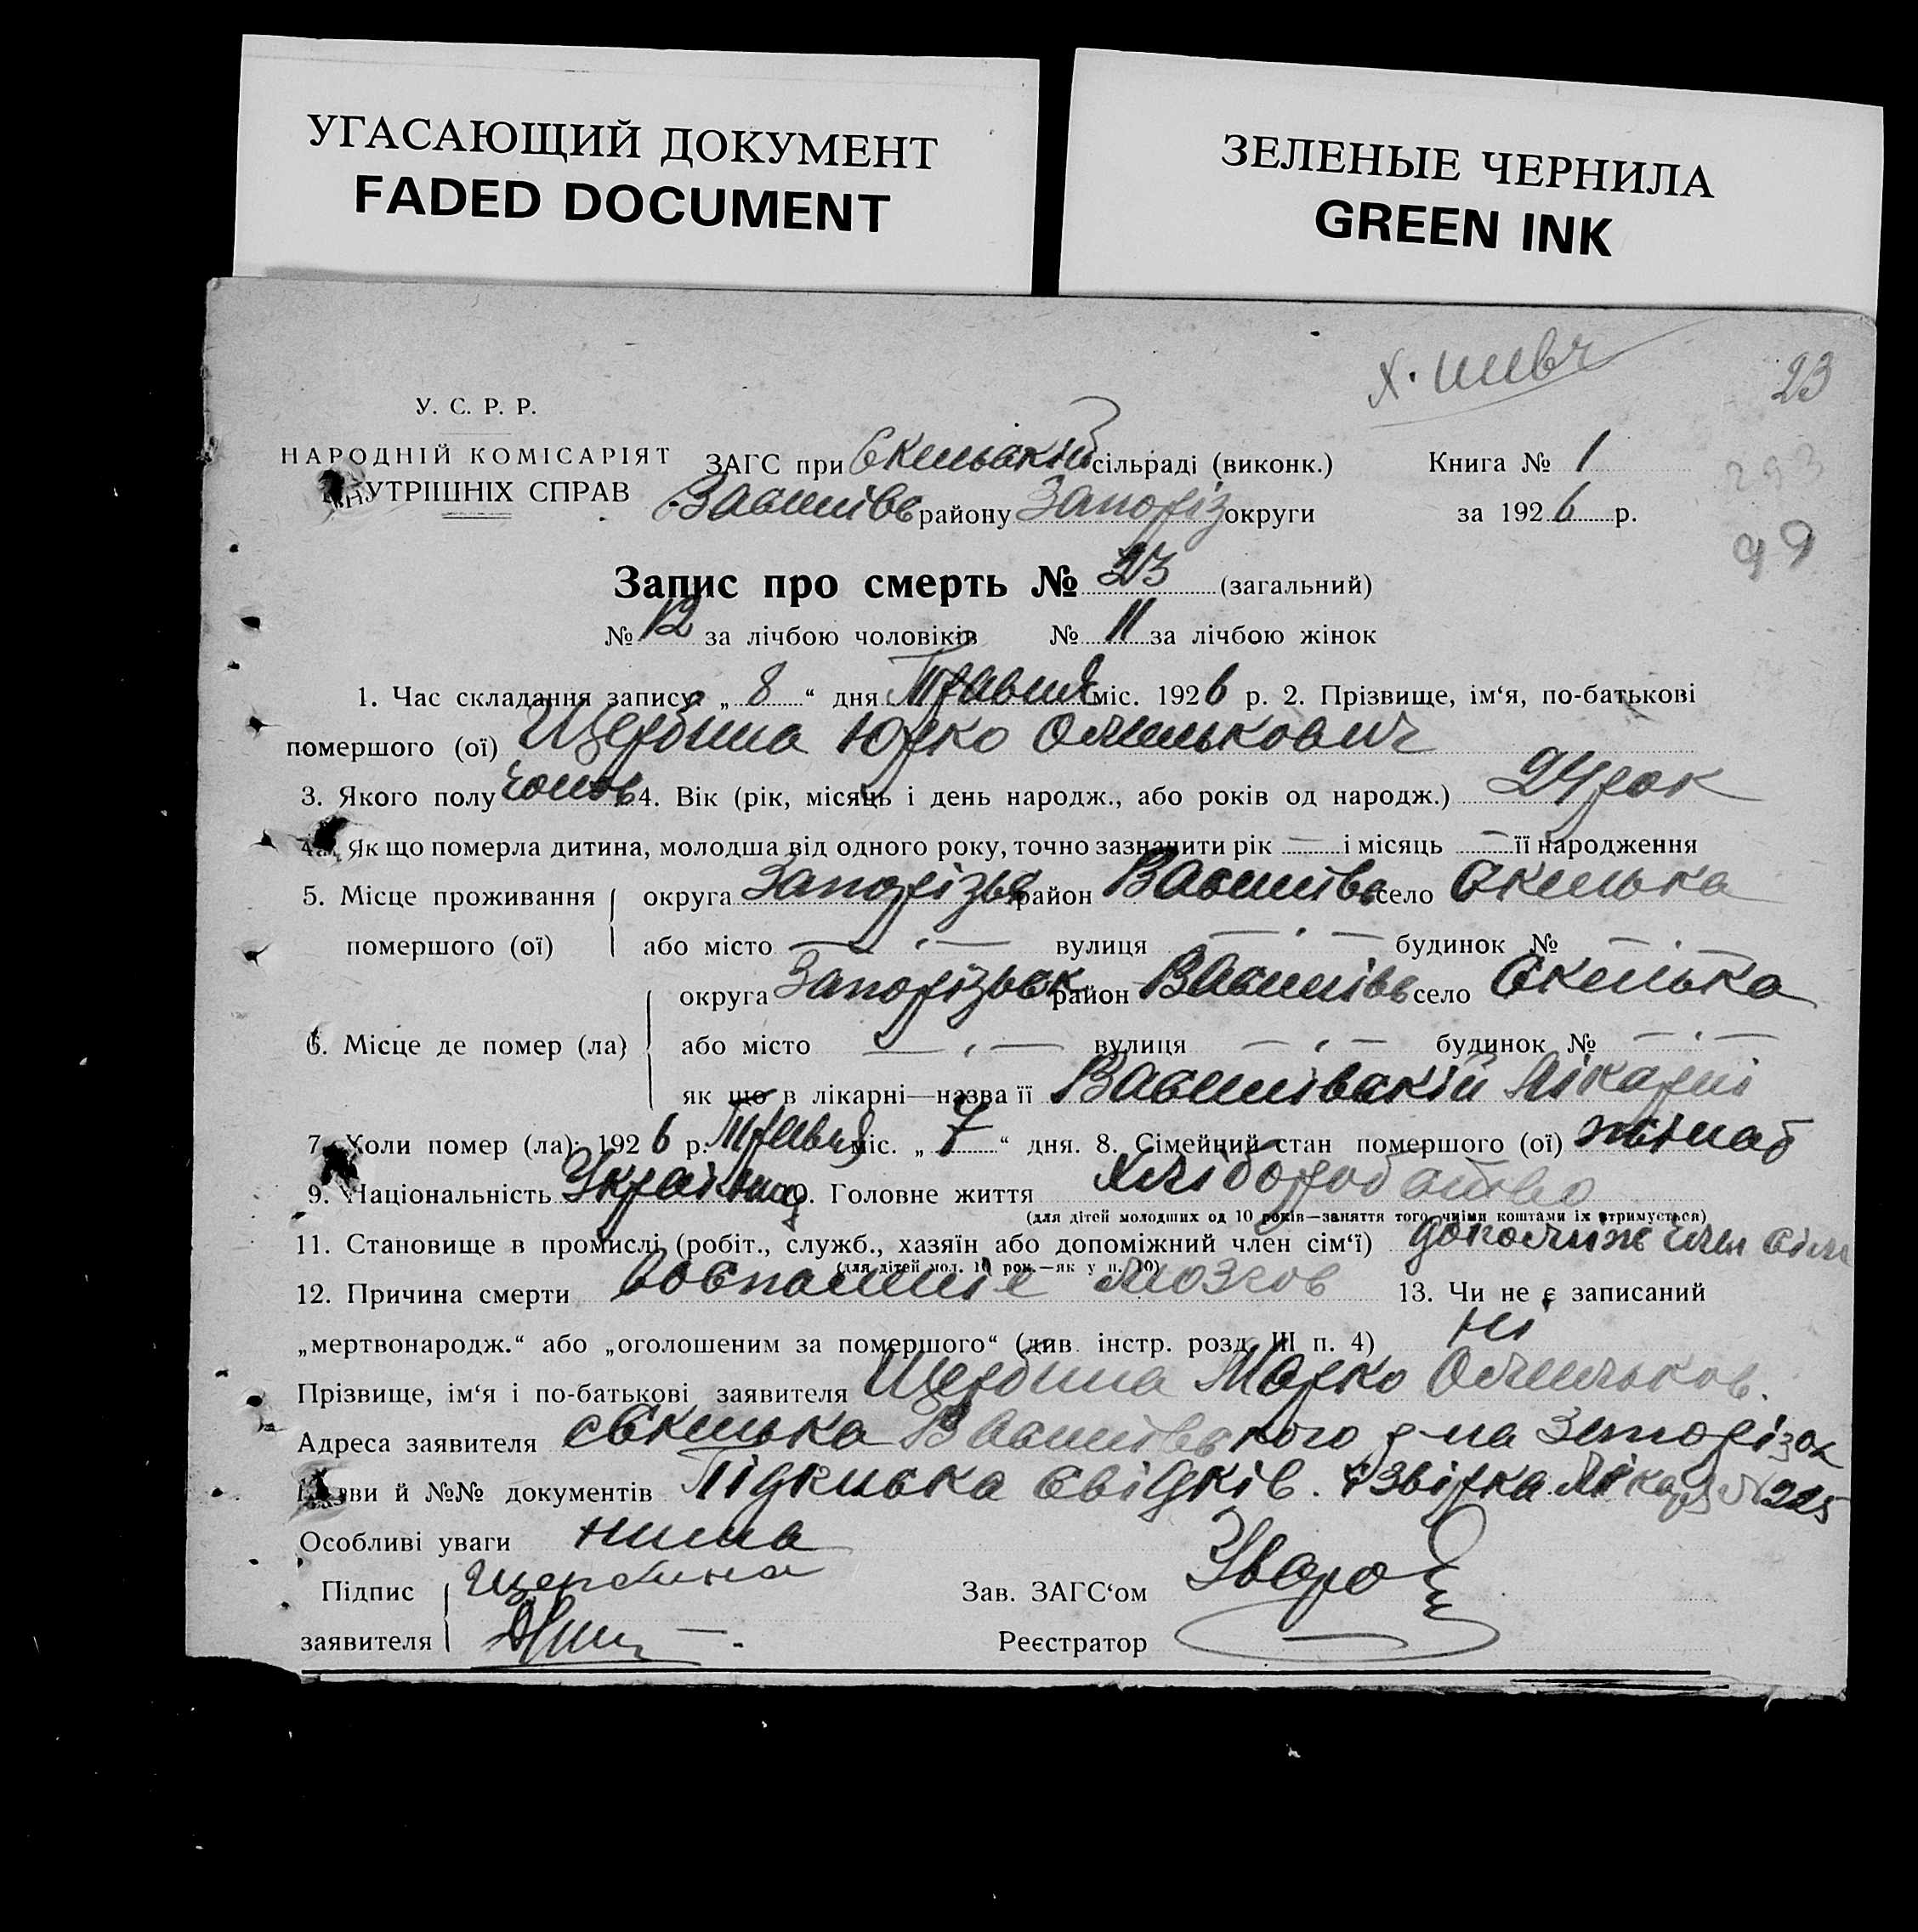 УГАСАЮЩИЙ ДОКУМЕНТ
FADED DOCUMENT
ЗЕЛЕНЫЕ ЧЕРНИЛА
GREEN INK
23
У. С. Р. Р.
НАРОДНІЙ КОМІСАРІЯТ
ВНУТРІШНІХ СПРАВ
ЗАГС при Скельській сільраді (виконк.)
Василівс району Запоріз округи
Книга № 1
за 1926 р.
99
Запис про смерть № 23 (загальний)
№ 12 за лічбою чоловіків № 11 за лічбою жінок
1. Час складання запису: „ 8 “ дня Травня міс. 1926 р. 2. Прізвище, ім‘я, по-батькові
помершого (ої) Щербина Юрко Омелькович
3. Якого полу чолов 4. Вік (рік, місяць і день народж., або років од народж.) 24 рок
4а. Як що померла дитина, молодша від одного року, точно зазначити рік — і місяць — її народження
5. Місце проживання округа Запорізьк район Василівс село Скелька
помершого (ої) або місто — " — вулиця — " — будинок № — " —
округа Запорізьк район Василівс село Скелька
6. Місце де помер (ла) або місто — " — вулиця — " — будинок № — " —
як що в лікарні—назва її Василівській лікарні
7. Коли помер (ла): 1926 р. Травня міс. „ 7 “ дня. 8. Сімейний стан помершого (ої)
9. Національність Україн 10. Головне життя хліборобство
(для дітей молодших од 10 років—заняття того, чиїми коштами їх утримується)
11. Становище в промислі (робіт., служб., хазяїн або допоміжний член сім‘ї) допоміж член сім
(для дітей мол. 10 рок.—як у п. 10)
12. Причина смерти воспаленіє мозгов 13. Чи не є записаний
„мертвонародж.“ або „оголошеним за помершого“ (див. інстр. розд. III п. 4) Ні
Прізвище, ім‘я і по-батькові заявителя Щербина Марко Омельков.
Адреса заявителя с Скелька Василівського р-на Запорізок
Назви й №№ документів Підписка свідків. Звірка лікаря № 225
Особливі уваги нима
Підпис Щербина
заявителя
Зав. ЗАГС‘ом
Реєстратор